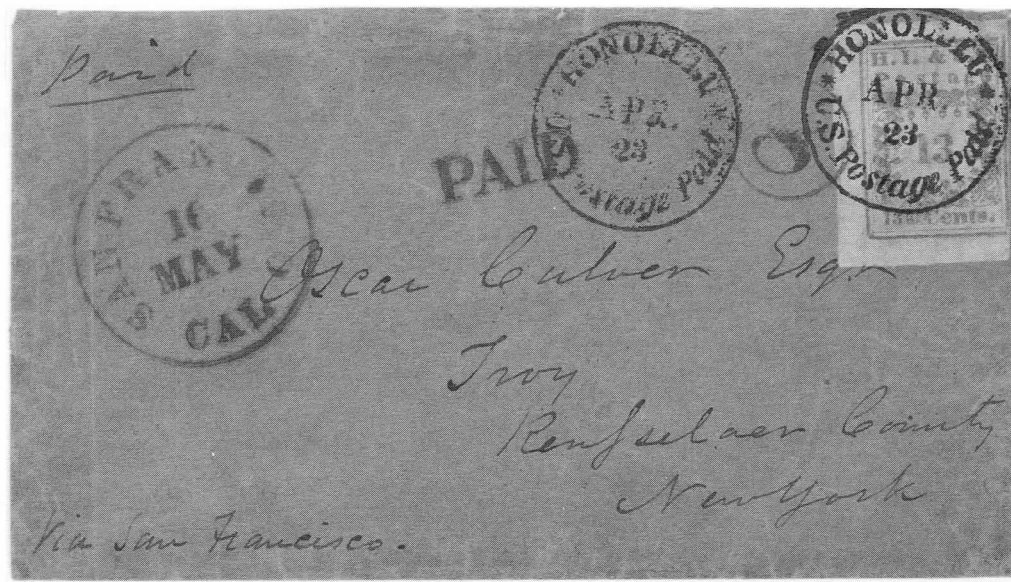 Paid
HONOLULU
APR.
23
U.S. Postage Paid
HONOLULU
APR
23
U.S. Postage Paid
H.I. & U.S.
Postage
13
PAID
SAN FRAN
16
MAY
CAL
Oscar Culver Esqr
Troy
Rensselaer County
New York
Via San Francisco.